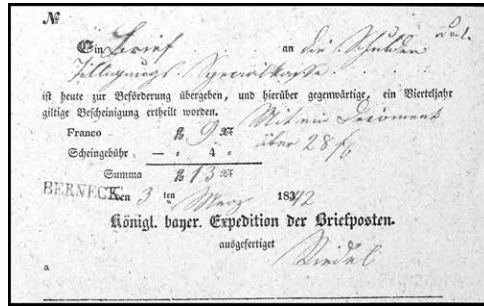 №
Ein Brief an die Schulden
Tilligungs Spezialkasse.
ist heute zur Beförderung übergeben, und hierüber gegenwärtige, ein Vierteljahr
giltige Bescheinigung ertheilt worden.
Mit ein Document
Franco fl 9 xr
über 28 f
Scheingebühr — „ 4 „
Summa fl 13 xr
BERNECK den 3 ten Merz 1842
Königl. bayer. Expedition der Briefposten.
ausgefertiget
Riedel
a